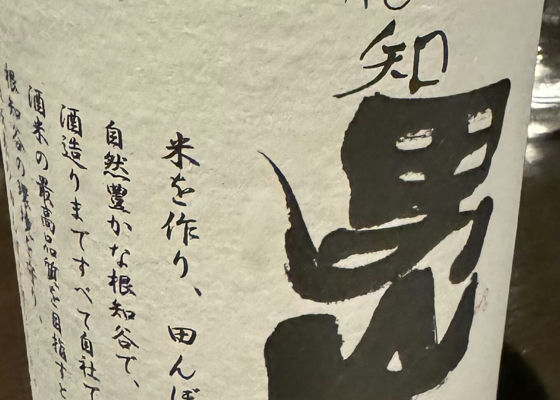 知
男山
米を作り、田んぼ
自然豊かな根知谷で、
酒造りまですべて自社で
酒米の最高品質を目指すと
根知谷の